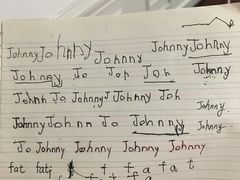 Johnny Johnny Johnny Johnny Johnny
Johnny Jo Joh Joh Johnny
Johnh Jo Johnny J Johnny Joh
Johnny
Johnny John n Jo Johnny Johnny
Jo Johnny Johnny Johnny Johnny
fat fat f a f a t